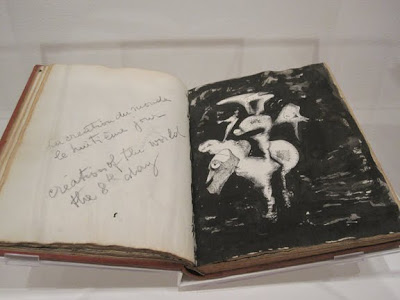 la creation du monde
le huitième jour
creation of the world
the 8th day